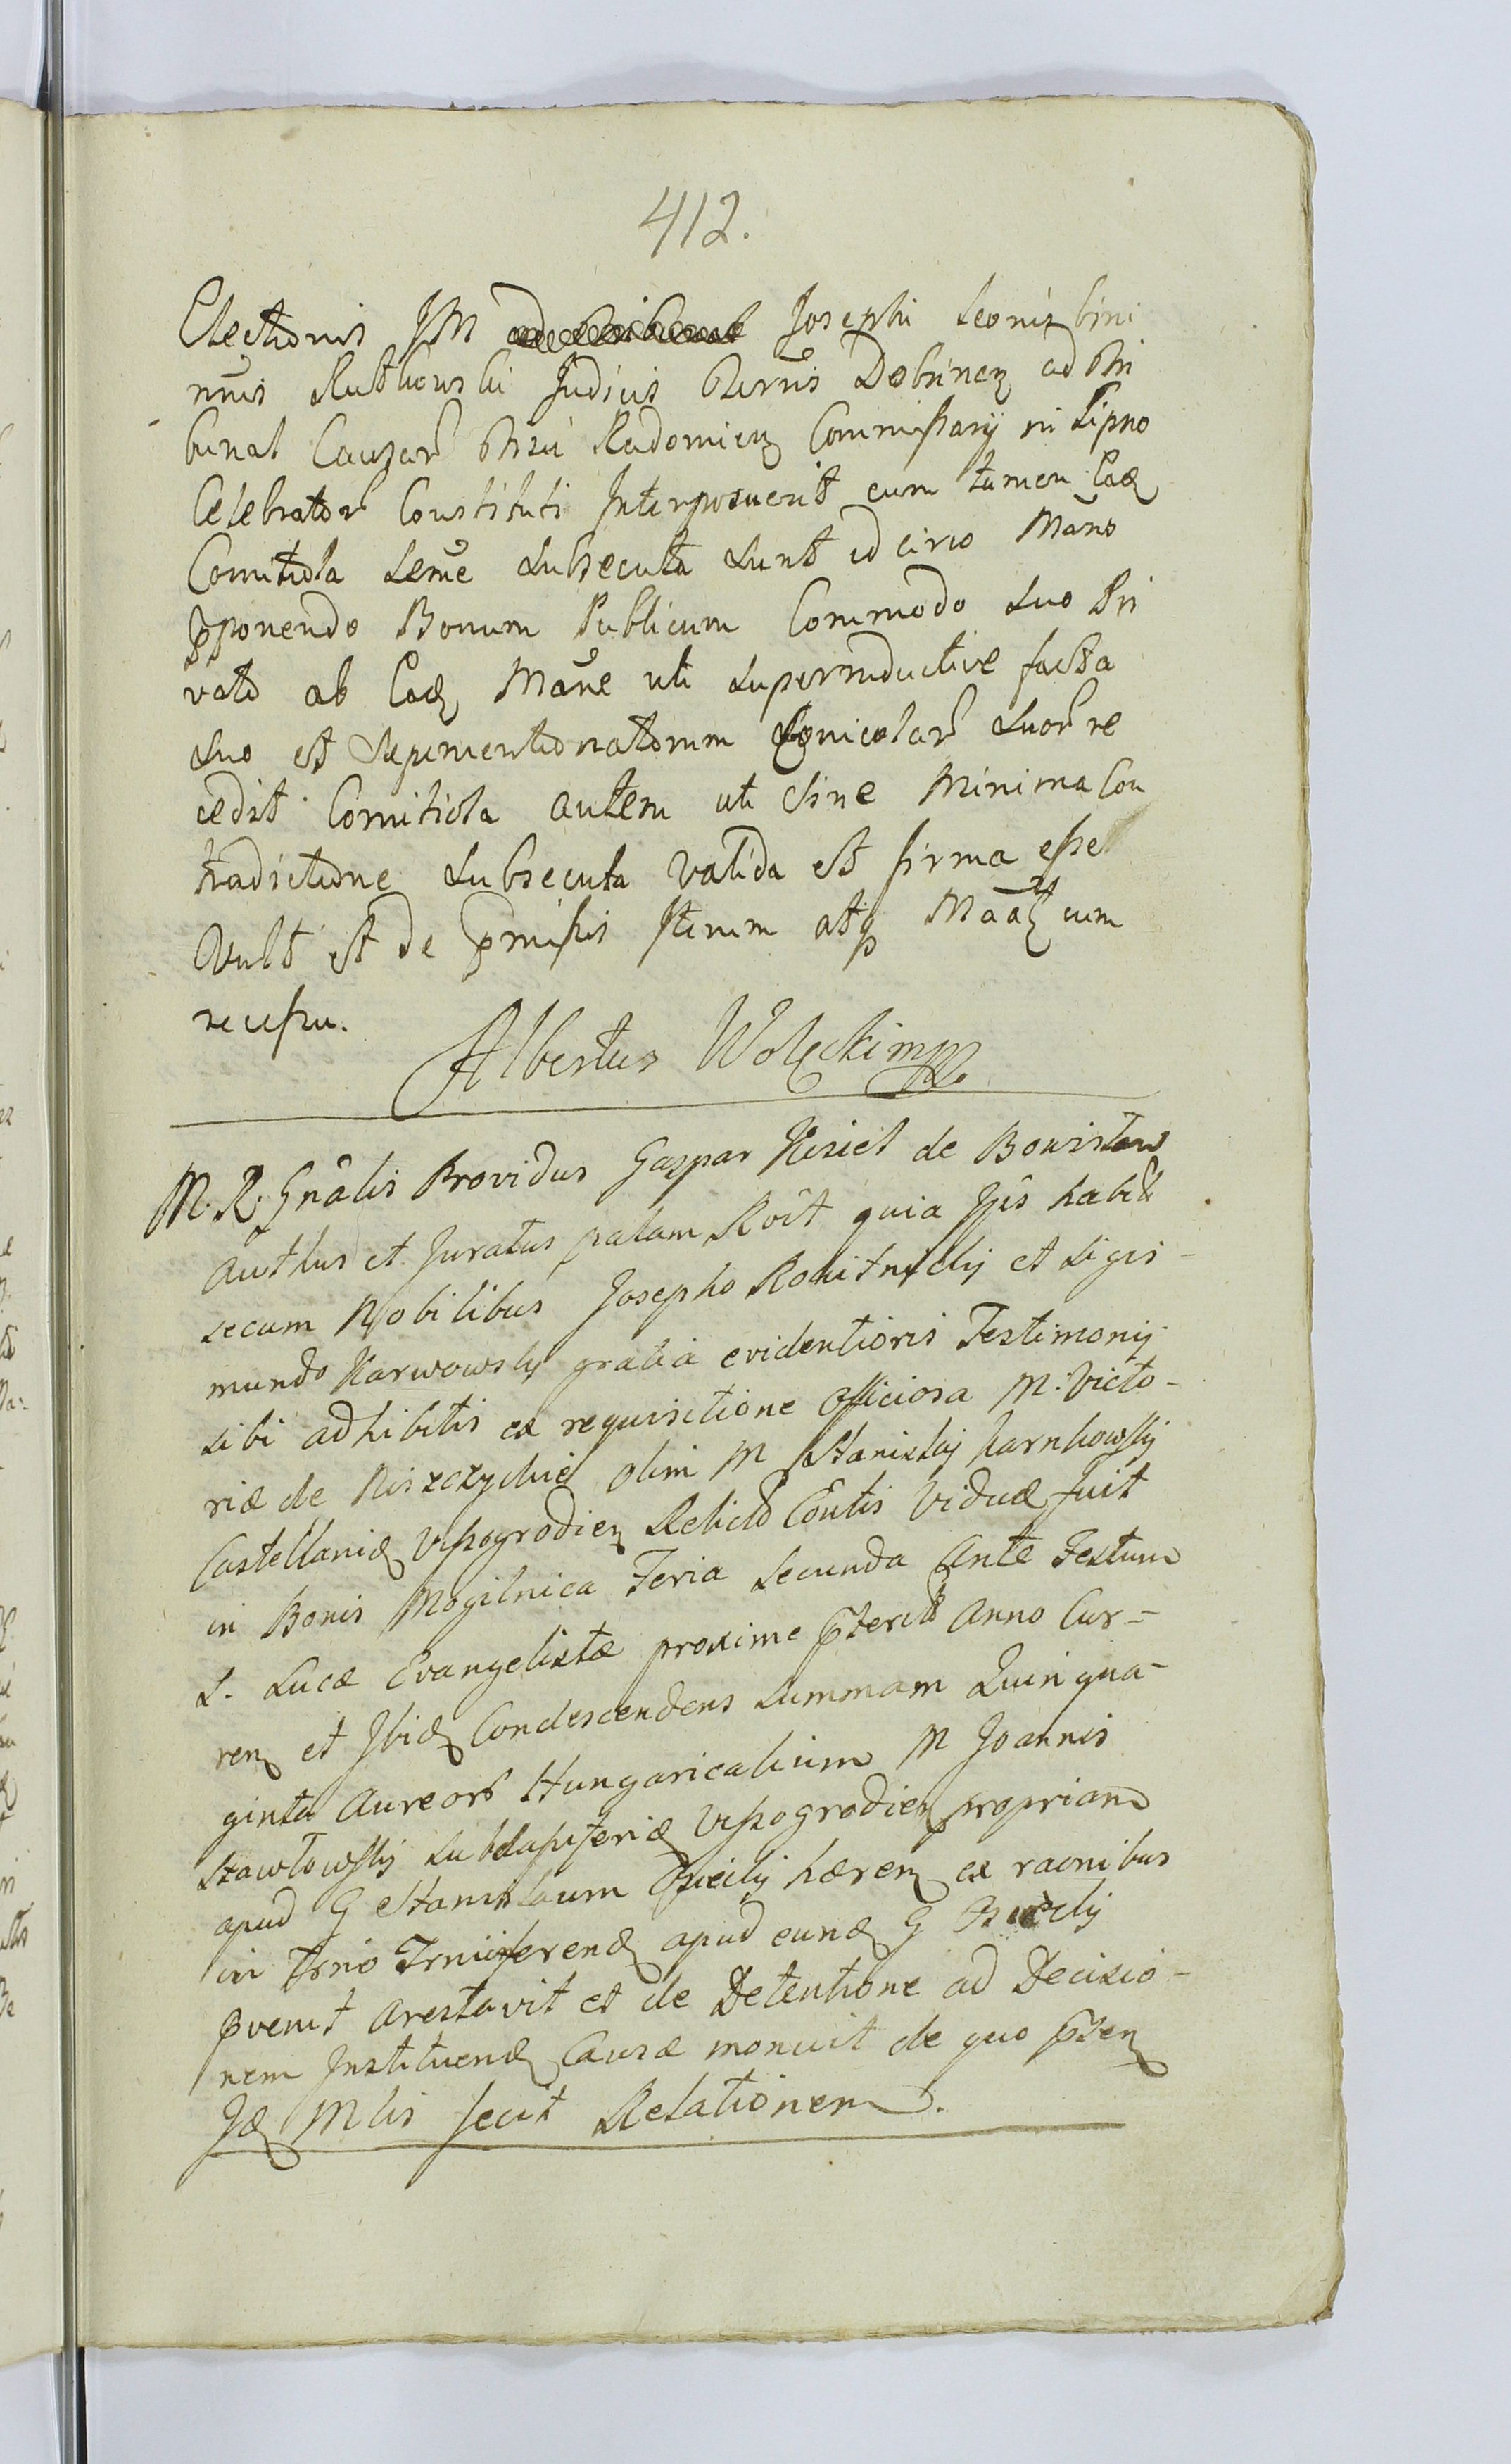 412.
Electionis JM Josephi Leonis bini
nũis Rutkowski Judicis Terrũis Dobrineņ ad Tri
bunal Causar Thri Radomieņ Commissarij in Lipno
Celebrator Constituti Interposuerit cum tamen Eadȩ
Comitiola serue subsecuta sunt id circo Mãns
pponendo Bonum Publicum Commodo suo Pri
vato ab Eadȩ Mãne uti superinductive facta
suo et supermentionatorum Conicolar suor re
cedit Comitiola autem uti sine Minima Con
tradictione subsecuta valida et firma esse
Vult et de pmissis Iterum atqȝ cum
recessu.
Albertus Wolęcki mpp
M. R. Gnãlis Providus Gaspar Kisiel de Bonislaw
Authus et Juratus palam Rcit quia Ips habit
secum Nobilibus Josepho Rokitnicky et Sigis-
mundo Karwowsky gratia evidentioris Testimonij
sibi adhibitis ex requisitione officiosa M. Victo-
riæ de Niszczyckie olim M Stanislaj Karnkowsky
Castellanidȩ Vissogrodieņ Relict Contis Viduæ fuit
in Bonis Mogilnica Feria secunda Ante Festum
S. Lucæ Evangelistæ proxime pterit Anno Cur=
reņ et Ibidȩ Condescendens summam Quinqua-
ginta Aureor Hungaricalium M Joannis
Szawłowsky subdapiferidȩ Vissogrodieņ propriam
apud G Stanislaum hæreņ ex racnibus
in Trno Trnũferendȩ apud eundȩ G
pvenit arestavit et de Detentione ad Decisio-
nem Instituendȩ Causæ monuit de quo pseņ
Jdȩ Mlis fecit Relationem.